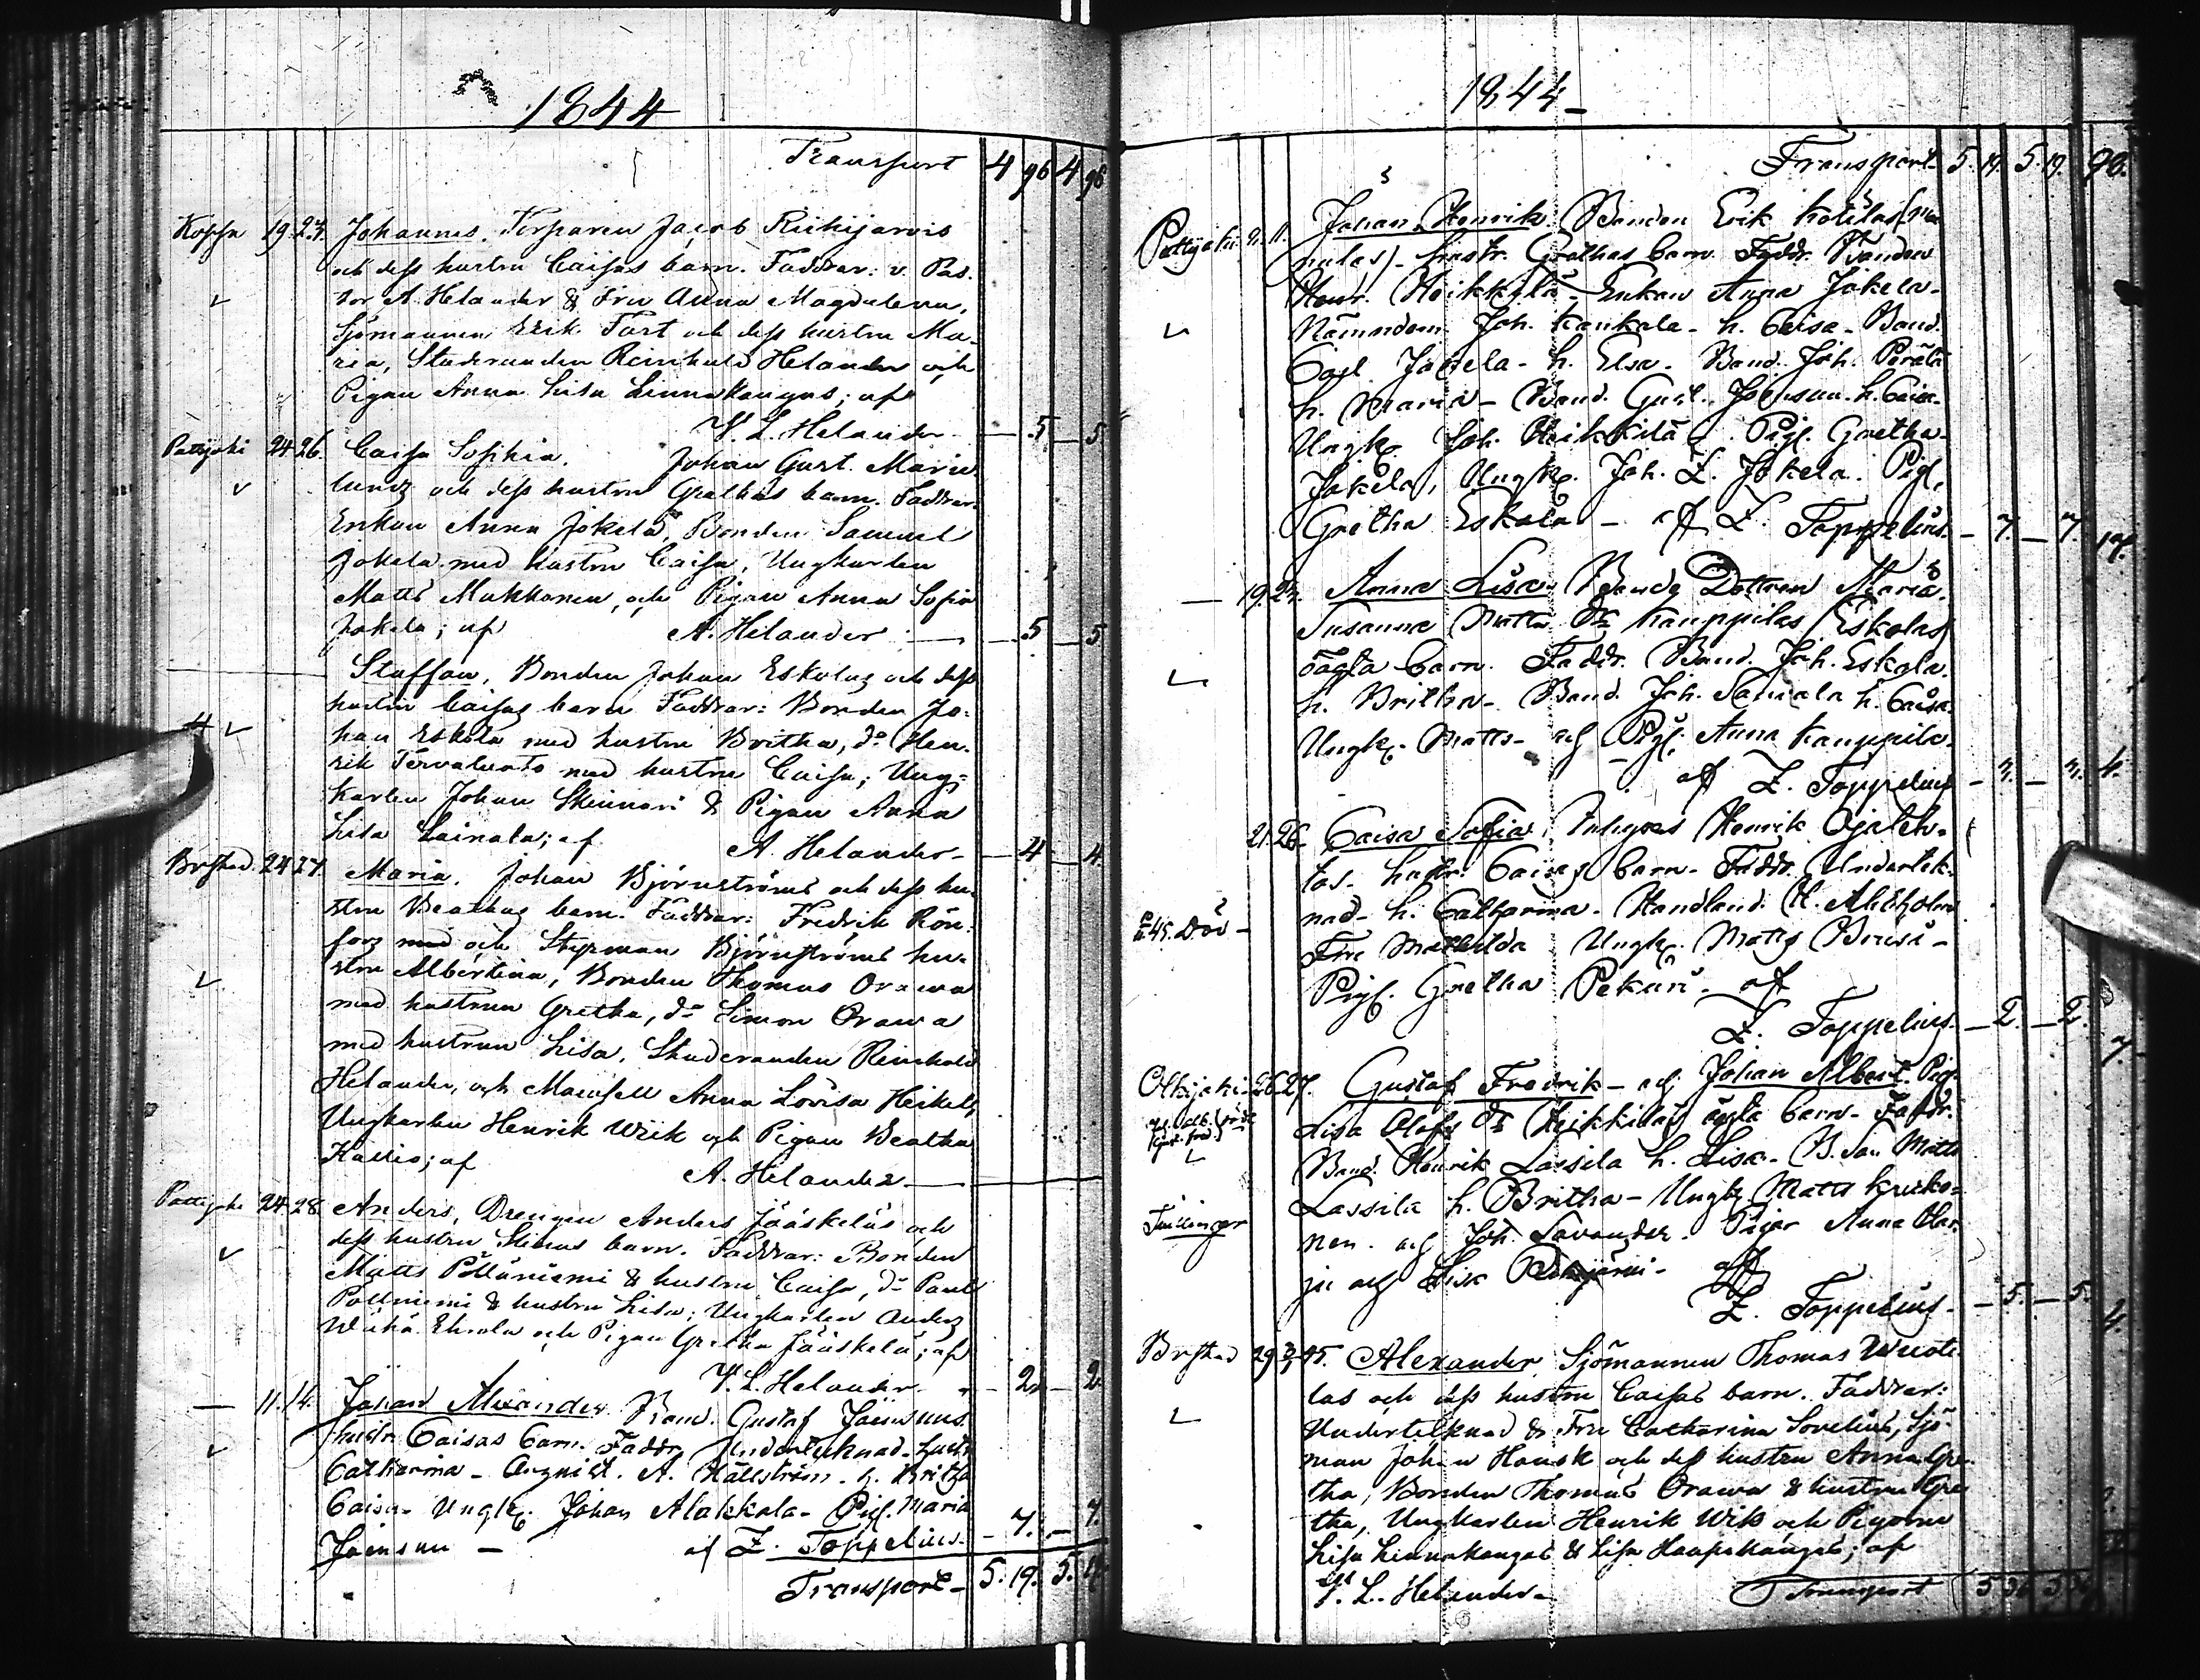 1844
Transport 4 96 4 96
Kopsa 19. 27. Johannes. Torparen Jacob Riihijärvis
och dess hustru Caisas barn. Faddrar: v. Pas-
tor A. Helander & Fru Anna Magdalena,
Sjömannen Erik Fart och dess hustru Ma-
ria, Studeranden Reinhold Helander och
Pigan Anna Lisa Linnakangas; af
V. L. Helander — 5 — 5
Pattijoki 24 26. Caisa Sophia. Johan Gust. Marie-
lundz och dess hustru Grethas barn. Faddrar:
Enkan Anna Jokela, Bonden Samuel
Jokela med hustru Caisa, Ungkarlen
Matts Mukkonen, och Pigan Anna Sofia
Jokela; af A. Helander — 5 — 5
Staffan, Bonden Johan Eskolas och dess
hustru Caisas barn Faddrar: Bonden Jo-
han Eskola med hustru Britha, do Hen-
rik Tervaluoto med hustru Caisa; Ung-
karlen Johan Skinnari & Pigan Anna
Lisa Lainala; af A. Helander — 4 — 4.
Brhstad. 24 27. Maria. Johan Björnströms och dess hu-
stru Beathas barn. Faddrar: Fredrik Rön-
fors med och Styrman Björnströms hu-
stru Albertina, Bonden Thomas Orawa
med hustrun Gretha, do Simon Orawa
med hustrun Lisa, Studeranden Reinhold
Helander, och Mamsell Anna Lovisa Heikel,
Ungkarlen Henrik Wiik och Pigan Beatha
Kallio; af A. Helander —
Pattijoki 24. 28. Anders, Drengen Anders Jääskeläs och
dess hustru Stinas barn. Faddrar: Bonden
Matts Pölläniemi & hustru Caisa, do Paul
Pöllniemi & hustru Lisa; Ungkarlen Anders
Eskola och Pigan Gretha Jääskelä; af
V. L. Helander — 2 — 2
— 11. 14. Johan Alexander Bond. Gustaf Joensuus
hustr. Caisas barn. Faddr. Undertecknad. hustr.
Catharina - A. Hällström. h. Britha
Caisa - Ungk. Johan Alakkala - Pig. Maria
Joensuu — af Z. Toppelius — 7. — 7.
Transport — 5. 19. 5. 19.
1844
Transport. 5. 19. 5. 19. 90.
Pattijoki. 9. 11. Johan Henrik Bonden Erik Kotilas
hustr. Grethas barn Faddr. Bonden
Henr. Heikkilä - Enkan Anna Jokela -
Nämndem. Joh. Kankala - h. Caisa - Bond.
Jokela - h. Elsa - Bond. Joh. Perälä
h. Maria - Bond. Gust. Joensuu. h. Caisa.
Ungk. Joh. Heikkilä - Pig. Gretha
Jokela, Ungk. Joh. Z. Jokela. Pig.
Gretha Eskola - af Z. Toppelius — 7. — 7. 17.
— 19. 24. Anna Lisa. Bonde Dottren Maria
Susanna Matts dr Kauppilas (Eskolas)
oägta barn. Faddr. Bond. Joh. Eskola
h. Britha - Bond. Joh. h. Caisa
Ungk. Matts - och Pig. Anna Kauppila -
af Z. Toppelius — 3. — 3. 4.
21. 26. Caisa Sofia, Inhyses Henrik Ojaleh-
tos - hustr. Caisas barn - Faddr. Underteck-
nad - h. Catharina - Handland.
45. Död - Fru Mathilda Ungk. Matts
Pig. Gretha Pekuri - af
Z. Toppelius — 2. — 2.
Olkijoki 26. 27. Gustaf Fredrik - och Johan Albert. Pig.
Lisa Olofs dr (Heikkilas) oägta barn - Faddr.
Bond. Henrik Lassila h. Lisa - B. Son Matts
Tvillingar Lassila h. Britha - Ungk. Matts Kruko-
nen. och Joh. Savander. Pigor Anna Har-
ju och Lisa af
Z. Toppelius — 5. — 5.
Brhstad 29 45. Alexander Sjömannen Thomas
las och dess hustru Caisas barn. Faddrar:
Undertecknad & Fru Catharina Sovelius, Sjö-
man Johan Housk och dess hustru Anna Gre-
tha, Bonden Thomas Orawa & hustru Gre-
tha, Ungkarlen Henrik Wik och Pigorne
Lisa Linnakangas & Lisa Haapakangas; af
V. L. Helander -
Transport